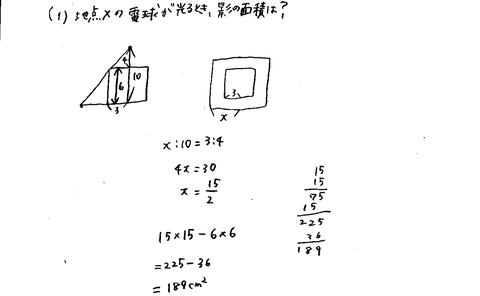 (1) 地点Xの電球が光るとき、影の面積は?
4
10
6
3
3
x
x:10=3:4
4x=30
x=15/2
15×15-6×6
=225-36
=189cm²
15
15
75
15
225
36
189